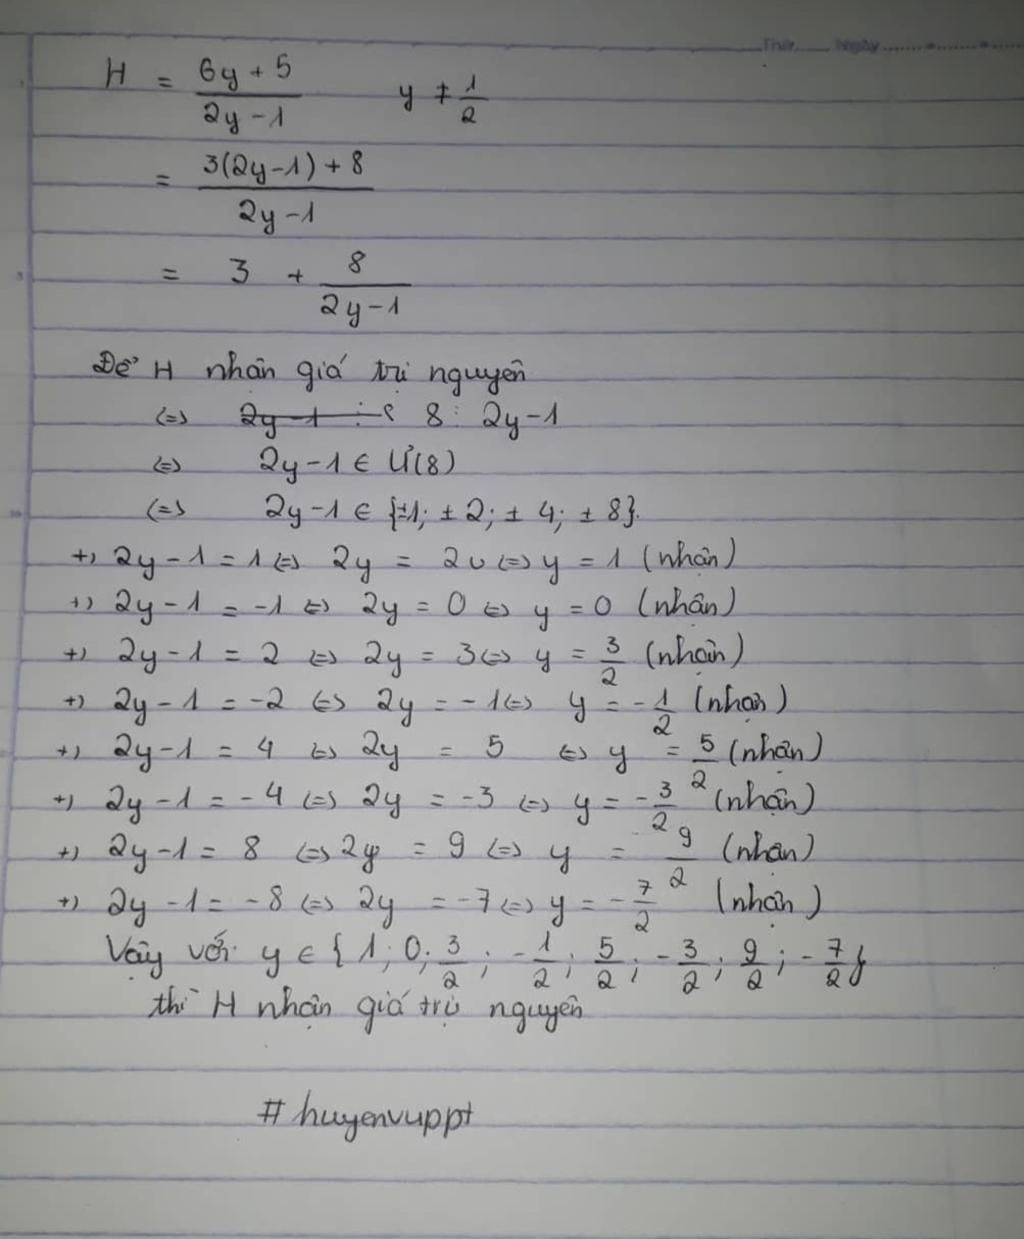 Thứ Ngày
H = (6y + 5)/(2y - 1) y ≠ 1/2
= (3(2y-1) + 8)/(2y - 1)
= 3 + 8/(2y - 1)
Để H nhận giá trị nguyên
<=> 8 ⋮ 2y-1
<=> 2y-1 ∈ Ư(8)
<=> 2y-1 ∈ {±1; ±2; ±4; ±8}.
+) 2y-1 = 1 <=> 2y = 2 <=> y = 1 (nhận)
+) 2y-1 = -1 <=> 2y = 0 <=> y = 0 (nhận)
+) 2y-1 = 2 <=> 2y = 3 <=> y = 3/2 (nhận)
+) 2y-1 = -2 <=> 2y = -1 <=> y = -1/2 (nhận)
+) 2y-1 = 4 <=> 2y = 5 <=> y = 5/2 (nhận)
+) 2y-1 = -4 <=> 2y = -3 <=> y = -3/2 (nhận)
+) 2y-1 = 8 <=> 2y = 9 <=> y = 9/2 (nhận)
+) 2y-1 = -8 <=> 2y = -7 <=> y = -7/2 (nhận)
Vậy với y ∈ {1; 0; 3/2; -1/2; 5/2; -3/2; 9/2; -7/2}
thì H nhận giá trị nguyên
#huyenvuppt